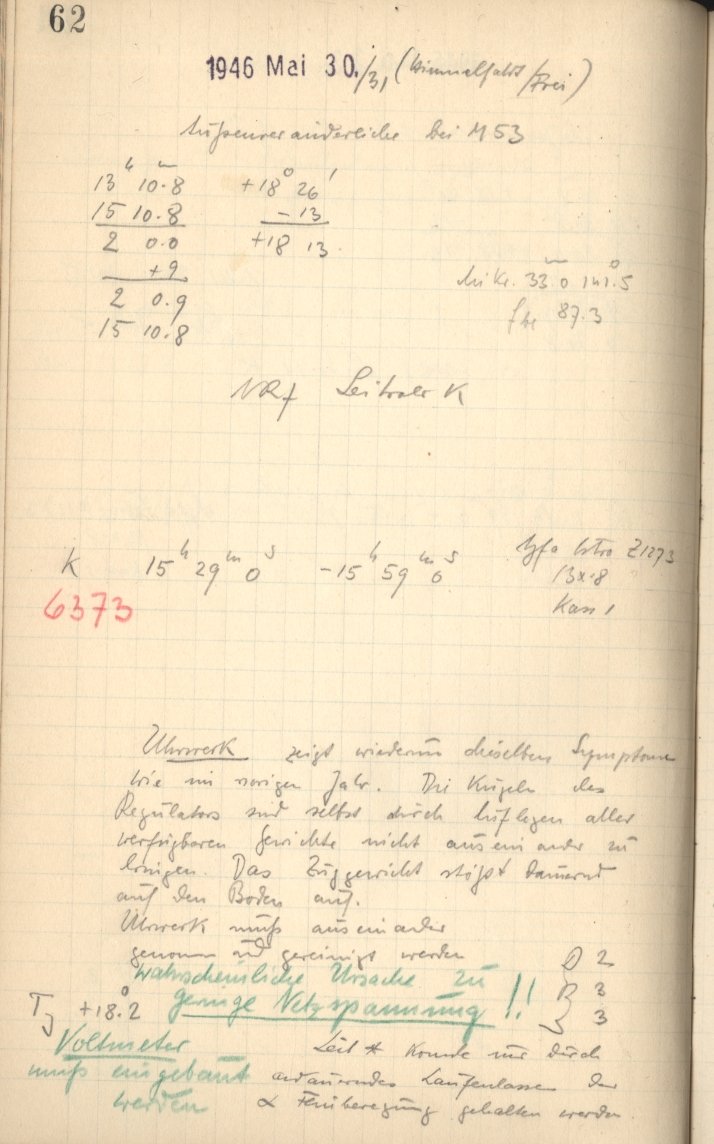 62
1946 Mai 30./31 (Himmelfahrt / Frei)
Außenveränderliche bei M 53
13h 10m.8 +18° 26'
15 10.8 -13
2 0.0 +18 13
+9
2 0.9
15 10.8
33m.0 141°.5
87.3
K 15h 29m 0s -15h 59m 0s Agfa Astro Z1273
6373 13x18
Kass 1
Uhrwerk zeigt wiederum dieselben Symptome
wie im vorigen Jahr. Die Kugeln des
Regulators sind selbst durch Auflegen aller
verfügbaren Gewichte nicht auseinander zu
bringen. Das Zuggewicht stößt dauernd
auf den Boden auf.
Uhrwerk muß auseinander
genommen und gereinigt werden
wahrscheinliche Ursache zu
geringe Netzspannung !!
D 2
R 3
3
+18°.2
Voltmeter
muß eingebaut
werden
Leit * konnte nur durch
andauerndes Laufenlassen der
α Feinbewegung gehalten werden.